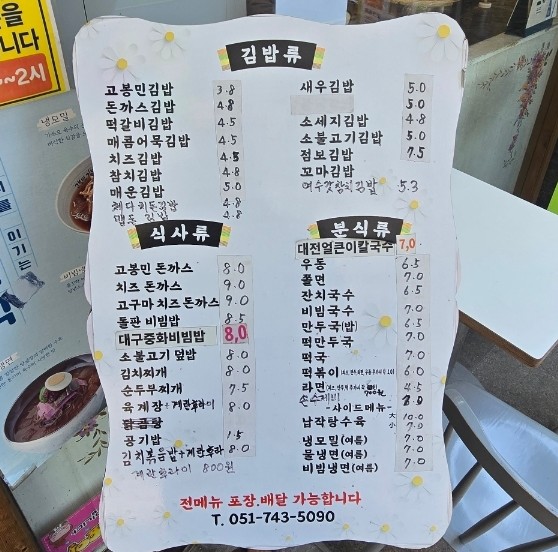 을
니다
~2시
냉모밀
를
이
기
는
김밥류
고봉민김밥 3.8
돈까스김밥 4.8
떡갈비김밥 4.5
매콤어묵김밥 4.5
치즈김밥 4.5
참치김밥 4.8
매운김밥 5.0
체다치돈김밥 4.8
맵돈김밥 4.8
새우김밥 5.0
5.0
소세지김밥 4.8
소불고기김밥 5.0
점보김밥 7.5
꼬마김밥
여수갓참치김밥 5.3
식사류
고봉민 돈까스 8.0
치즈 돈까스 9.0
고구마 치즈 돈까스 9.0
돌판 비빔밥 8.5
대구중화비빔밥 8,0
소불고기 덮밥 8.0
김치찌개 8.0
순두부찌개 7.5
육계장+계란후라이 8.0
닭곰탕
공기밥 1.5
김치볶음밥+계란후라이 8.0
계란후라이 800원
분식류
대전얼큰이칼국수 7,0
우동 6.5
쫄면 7.0
잔치국수 6.5
비빔국수 7.0
만두국(밥) 6.5
떡만두국 7.0
떡국 7.0
떡볶이 6.0
라면 4.5
손수제비 8.0
-사이드메뉴-
납작탕수육 대 10.0
소 7.9
냉모밀(여름) 7.0
물냉면(여름) 7.0
비빔냉면(여름) 7.0
전메뉴 포장.배달 가능합니다
T. 051-743-5090